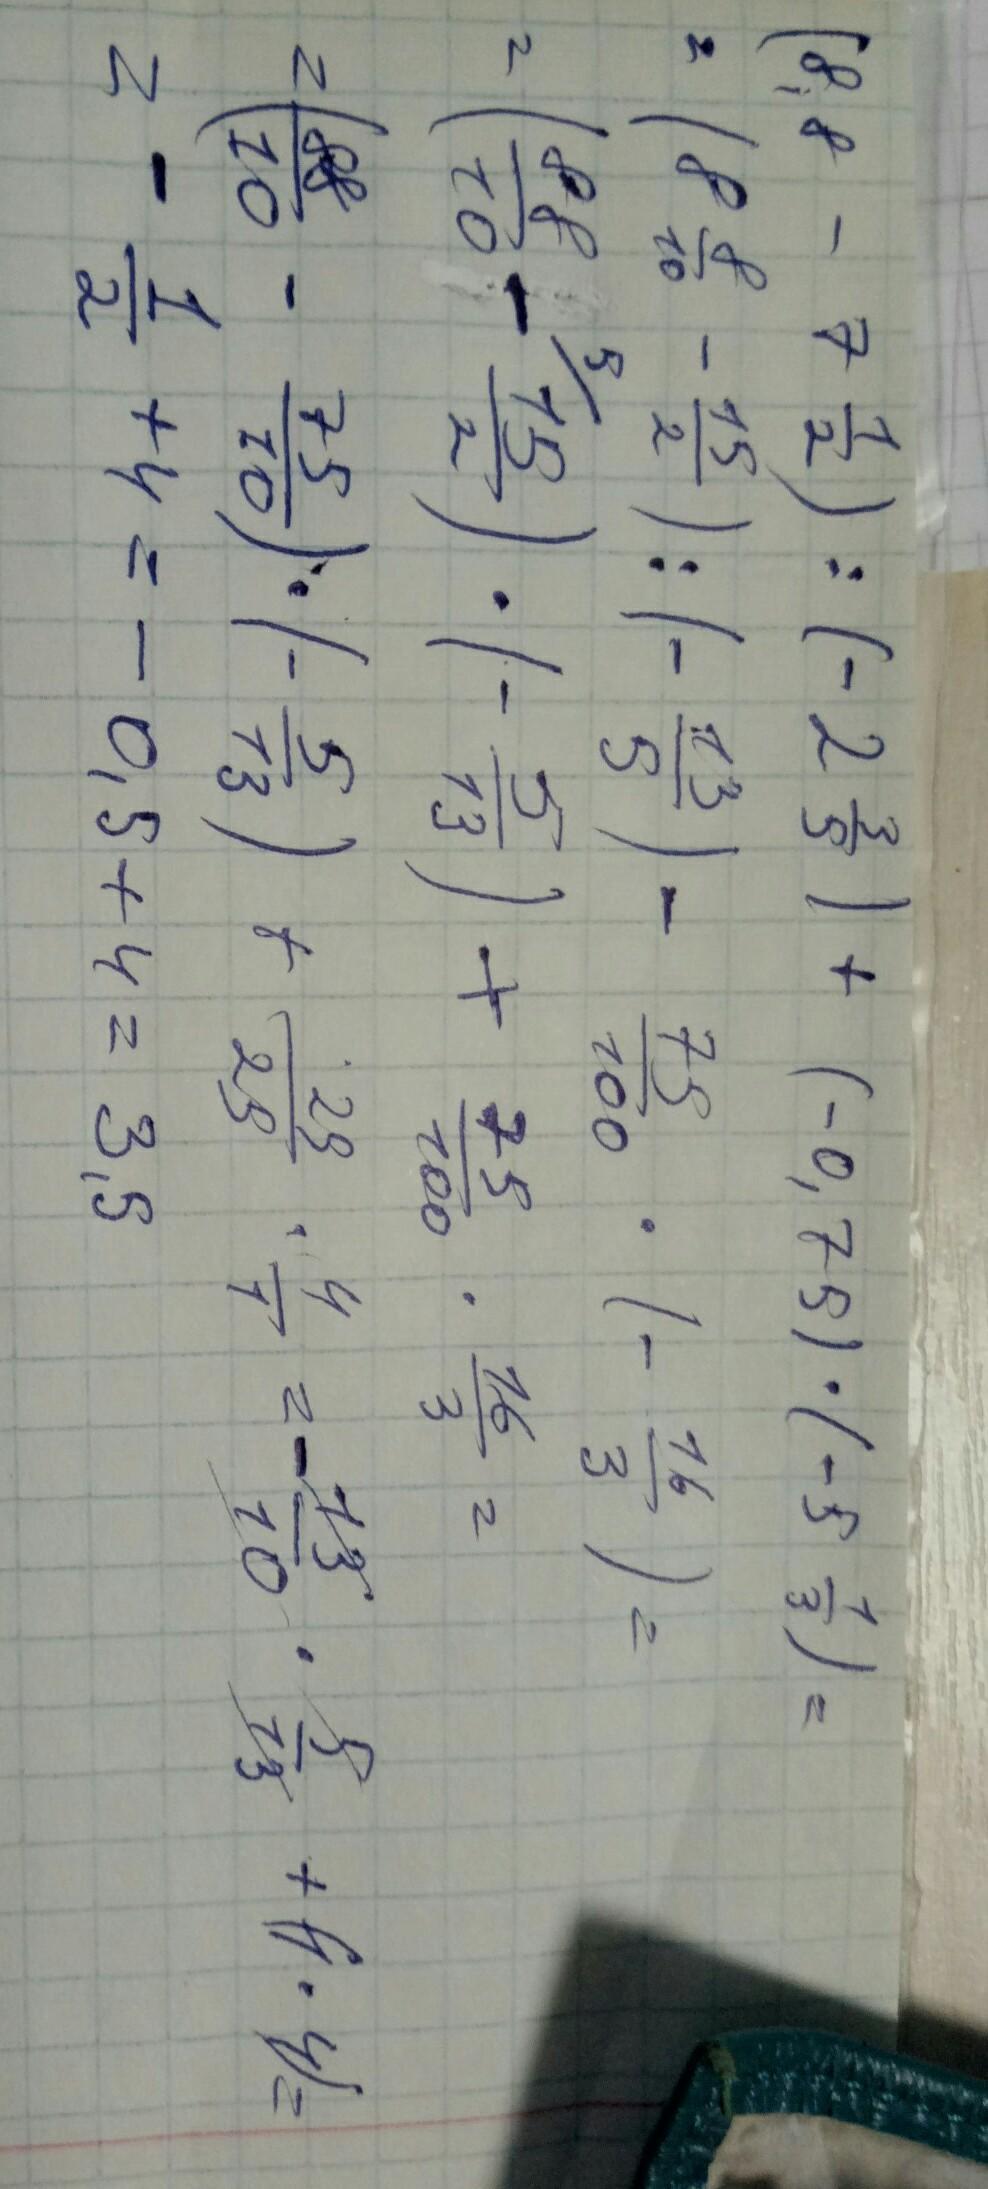 (8,8 - 7 1/2) : (- 2 3/5) + (-0,75) · (-5 1/3) =
= (8 8/10 - 15/2) : (- 13/5) - 75/100 · (- 16/3) =
= (88/10 - 5/ 15/2) · (- 5/13) + 75/100 · 16/3 =
= (88/10 - 75/10) · (- 5/13) + 25/25 · 4/1 = - 13/10 · 5/13 + 4 =
= - 1/2 + 4 = - 0,5 + 4 = 3,5